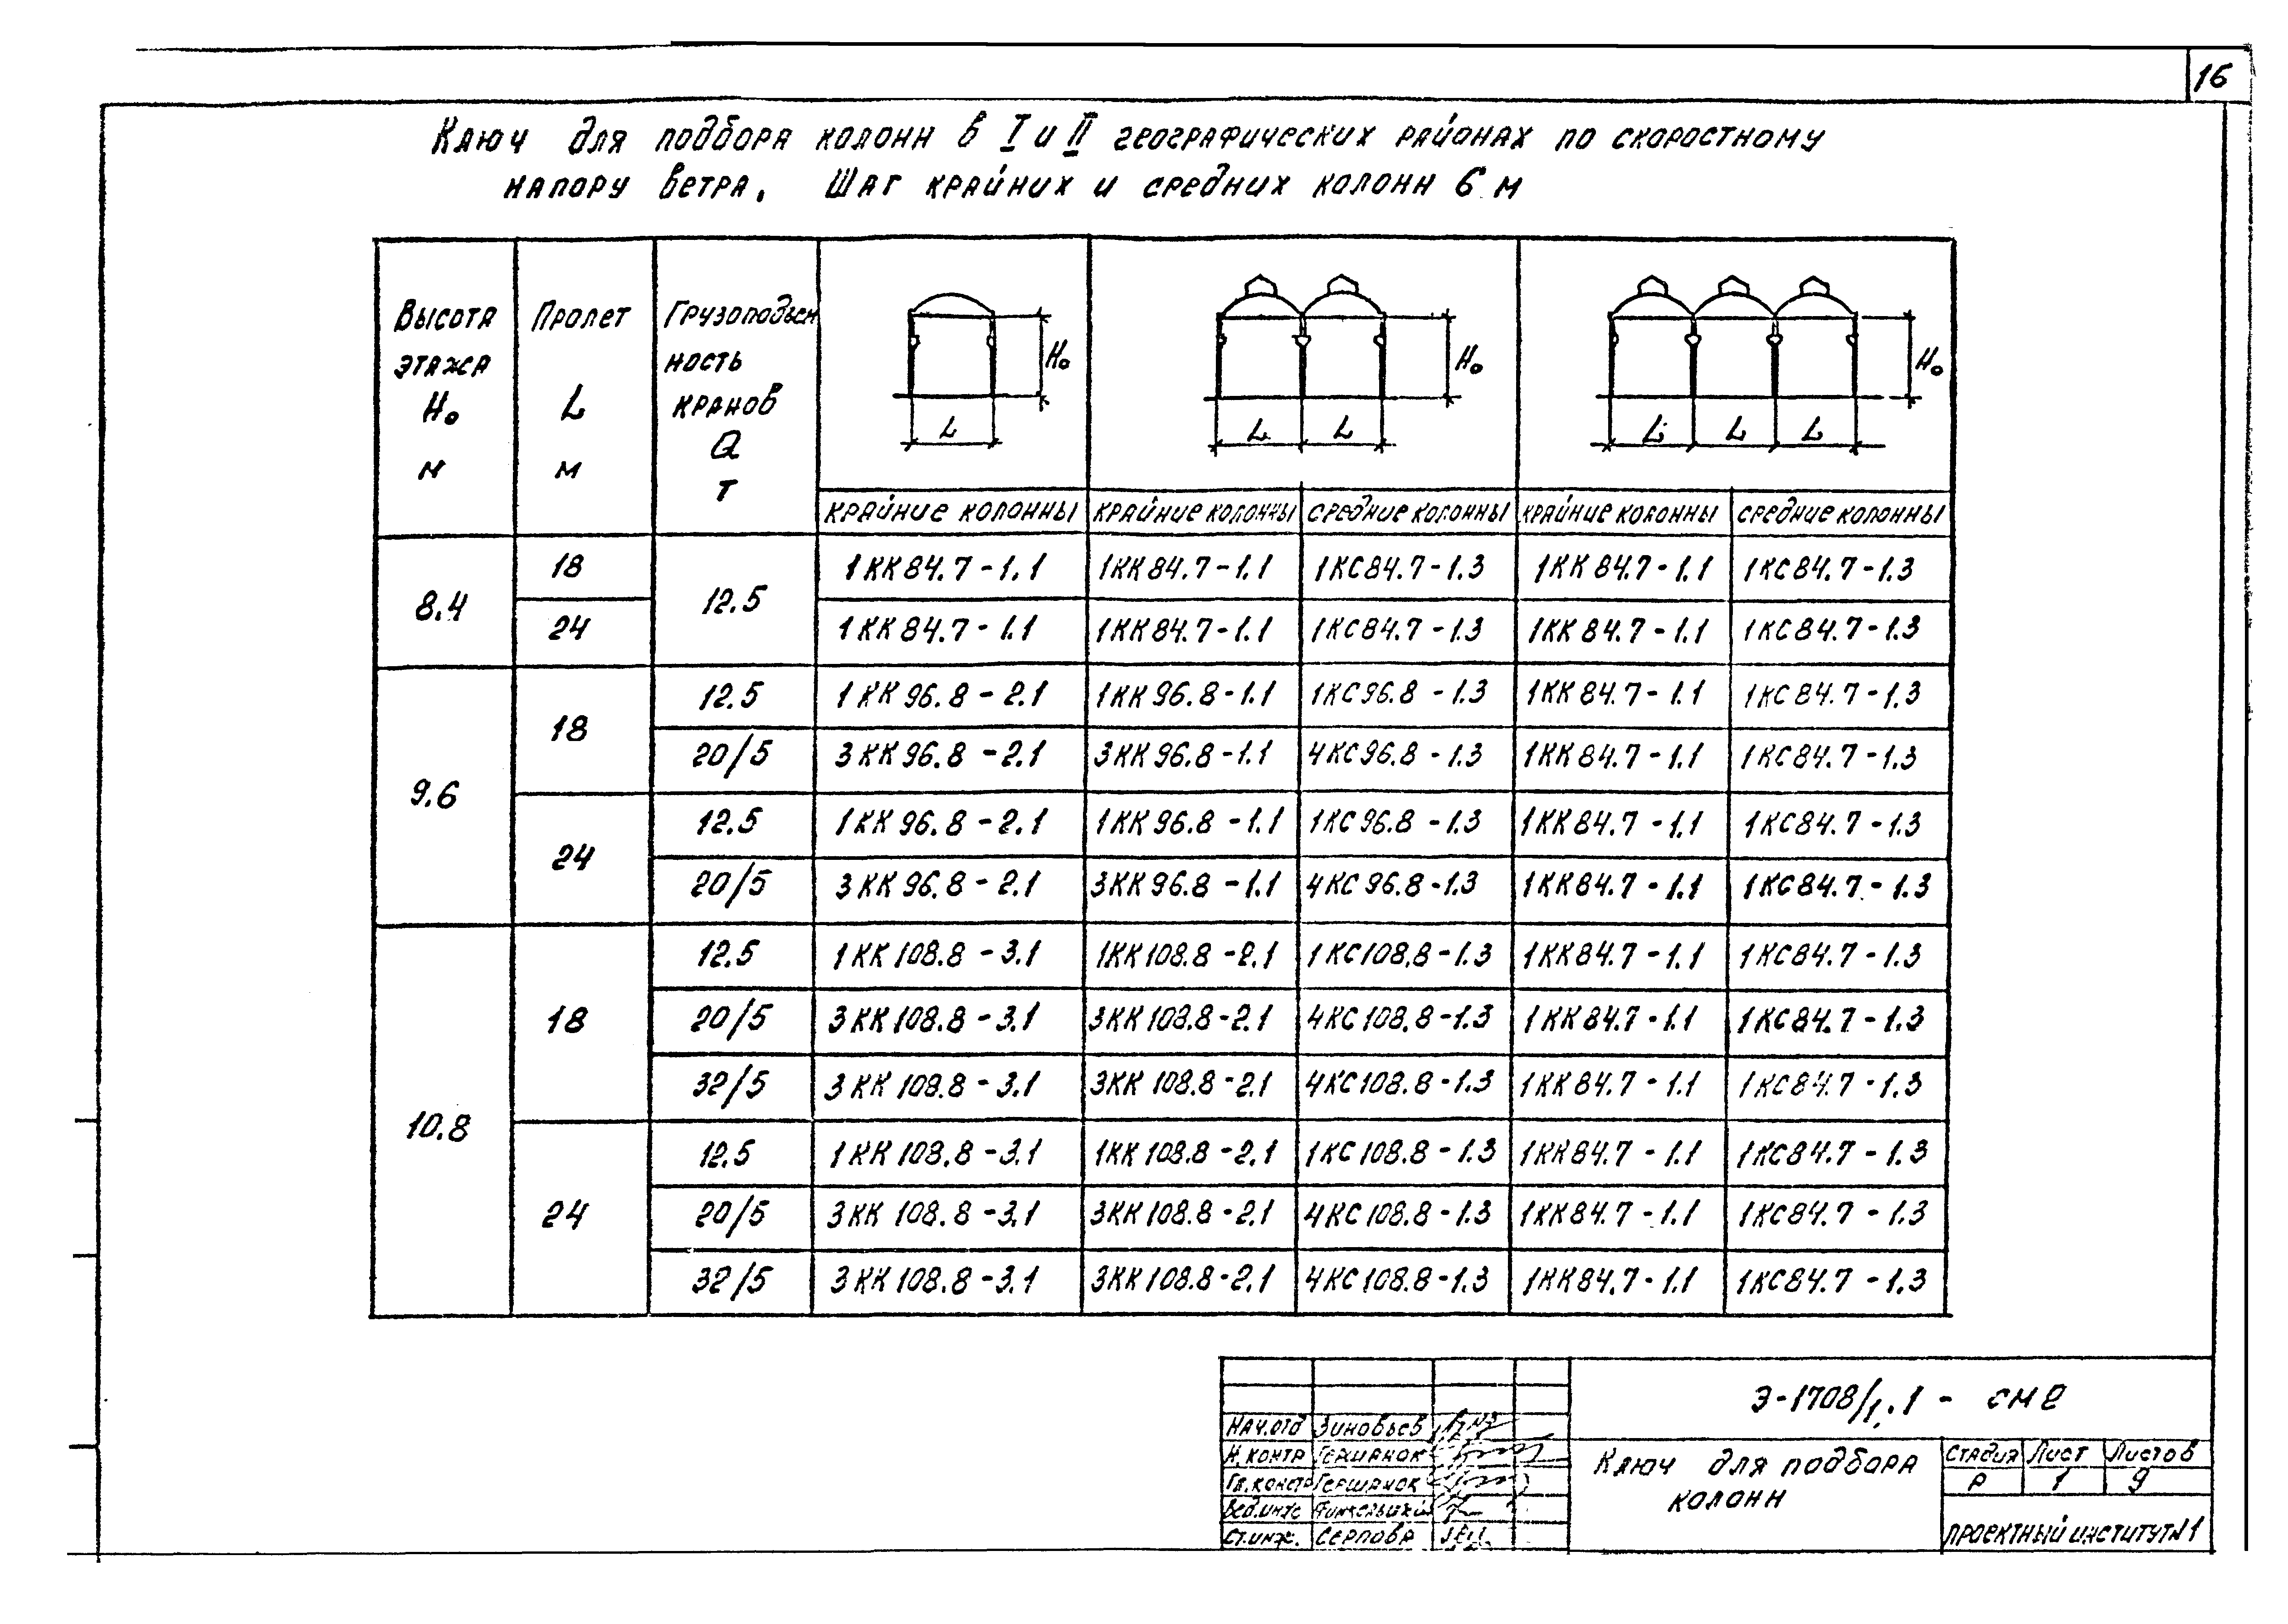 16
Ключ для подбора колонн в I и II географических районах по скоростному
напору ветра. Шаг крайних и средних колонн 6 м
Высота этажа Н₀ м
Пролет L м
Грузоподъем ность кранов Q т
Н₀
L
Н₀
L L
Н₀
L L L
крайние колонны крайние колонны средние колонны крайние колонны средние колонны
8.4 18 12.5 1КК84.7-1.1 1КК84.7-1.1 1КС84.7-1.3 1КК84.7-1.1 1КС84.7-1.3
24 1КК84.7-1.1 1КК84.7-1.1 1КС84.7-1.3 1КК84.7-1.1 1КС84.7-1.3
9.6 18 12.5 1КК96.8-2.1 1КК96.8-1.1 1КС96.8-1.3 1КК84.7-1.1 1КС84.7-1.3
20/5 3КК96.8-2.1 3КК96.8-1.1 4КС96.8-1.3 1КК84.7-1.1 1КС84.7-1.3
24 12.5 1КК96.8-2.1 1КК96.8-1.1 1КС96.8-1.3 1КК84.7-1.1 1КС84.7-1.3
20/5 3КК96.8-2.1 3КК96.8-1.1 4КС96.8-1.3 1КК84.7-1.1 1КС84.7-1.3
10.8 18 12.5 1КК108.8-3.1 1КК108.8-2.1 1КС108.8-1.3 1КК84.7-1.1 1КС84.7-1.3
20/5 3КК108.8-3.1 3КК108.8-2.1 4КС108.8-1.3 1КК84.7-1.1 1КС84.7-1.3
32/5 3КК108.8-3.1 3КК108.8-2.1 4КС108.8-1.3 1КК84.7-1.1 1КС84.7-1.3
24 12.5 1КК108.8-3.1 1КК108.8-2.1 1КС108.8-1.3 1КК84.7-1.1 1КС84.7-1.3
20/5 3КК108.8-3.1 3КК108.8-2.1 4КС108.8-1.3 1КК84.7-1.1 1КС84.7-1.3
32/5 3КК108.8-3.1 3КК108.8-2.1 4КС108.8-1.3 1КК84.7-1.1 1КС84.7-1.3
Э-1708/1.1 - СМ2
Нач.отд Зиновьев
Н.контр Гершанок
Гл.констр Гершанок
Вед.инж
Ст.инж. Серпова
Ключ для подбора
колонн
Стадия Лист Листов
Р 1 9
Проектный институт №1